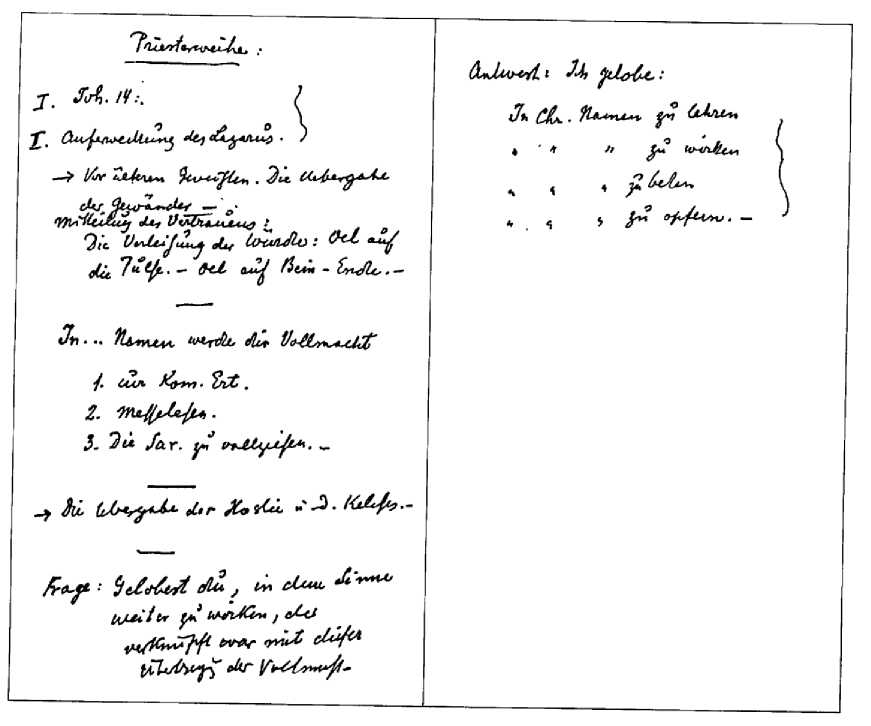 Priesterweihe:
I. Joh. 14:.
I. Auferweckung des Lazarus.
→ Vor älteren Geweihten. Die Uebergabe
der Gewänder —.
Mitteilung des Vertrauens:
Die Verleihung der Würde: Oel auf
die – Oel auf Bein-Ende.–
In... Namen werde dir Vollmacht
1. zur Kom. Ert.
2. Messelesen.
3. Die Sac. zu vollziehen. –
→ Die Uebergabe der Hostie u. d. Kelches.–
Frage: Gelobest du, in dem Sinne
weiter zu wirken, der
verknüpft war mit dieser
der Vollmacht–
Antwort: Ich gelobe:
In Chr. Namen zu lehren
" " " zu wirken
" " " zu beten
" " " zu opfern. –